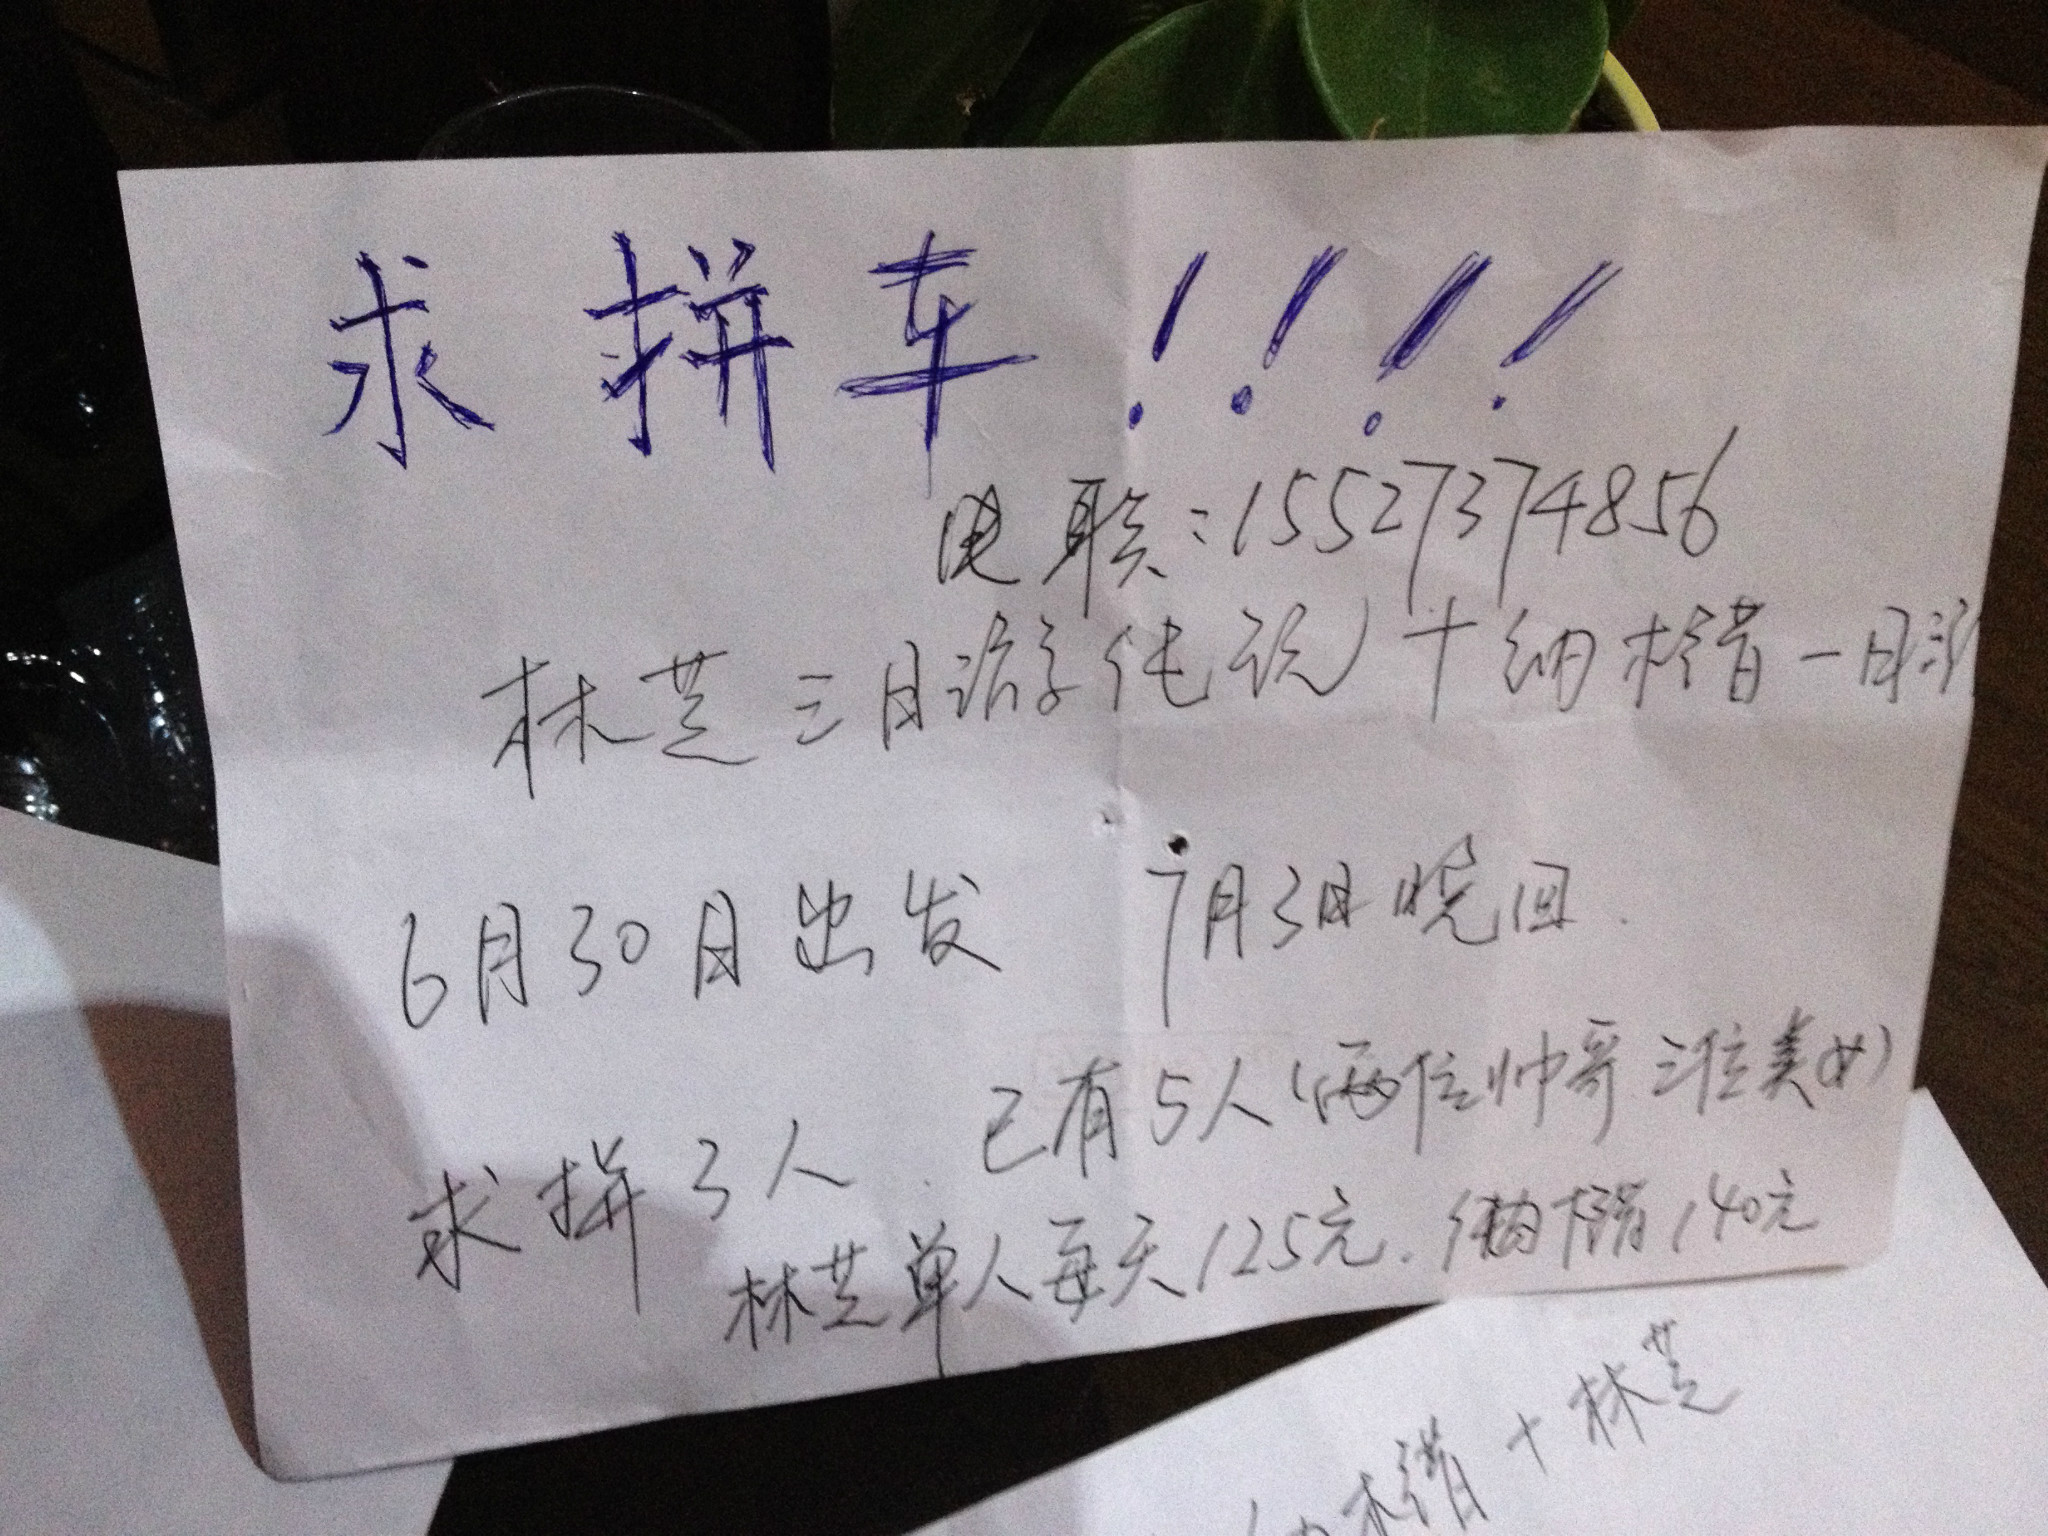 求拼车！！！！
电联：15527374856
林芝三日游(传说)+纳木错一日游
6月30日出发 7月3日晚回.
已有5人(两位帅哥 三位美女)
求拼3人.
林芝单人每天125元. 纳木错140元
木错+林芝